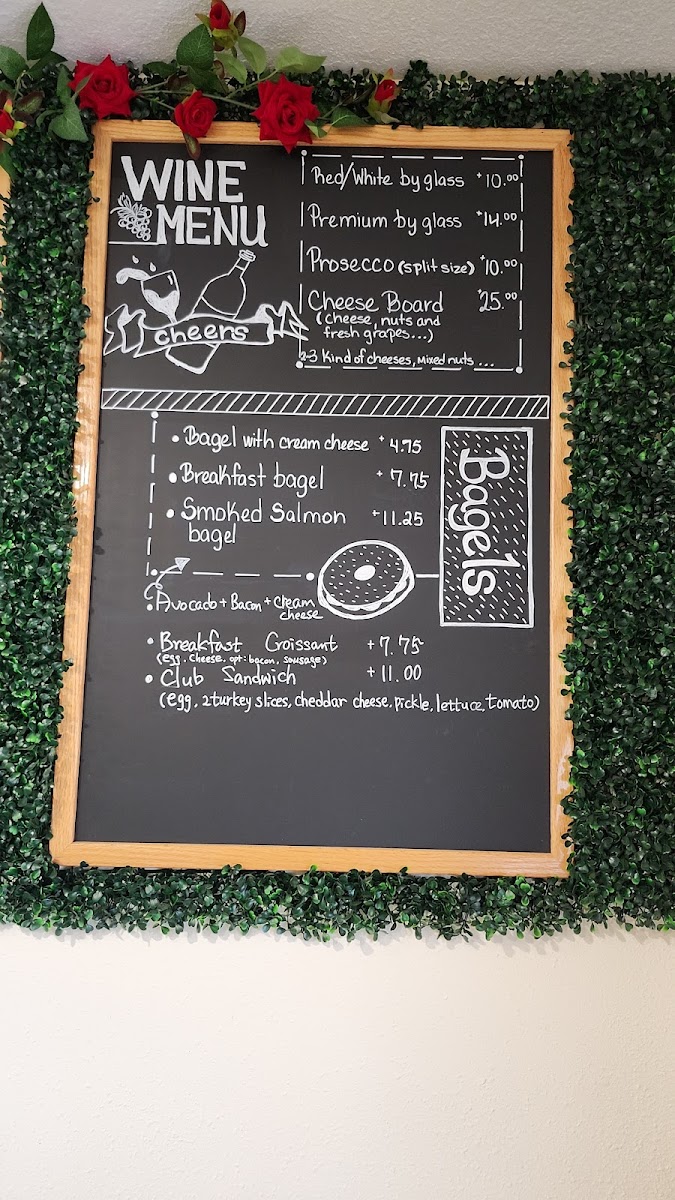 WINE
MENU
cheers
Red/White by glass +10.00
Premium by glass +14.00
Prosecco (split size) +10.00
Cheese Board +25.00
(cheese, nuts and
fresh grapes...)
2-3 Kind of cheeses, Mixed nuts ...
• Bagel with cream cheese + 4.75
• Breakfast bagel + 7.75
• Smoked Salmon +11.25
bagel
Bagels
• Avocado + Bacon + cream
cheese
• Breakfast Croissant +7.75
(egg, cheese, opt: bacon, sausage)
• Club Sandwich +11.00
(egg, 2 turkey slices, cheddar cheese, pickle, lettuce, tomato)